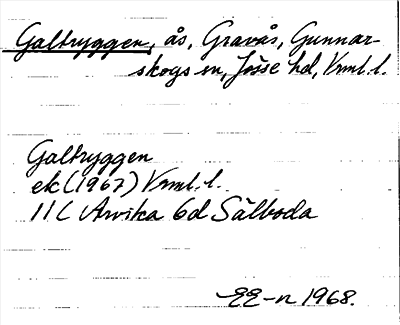 Galtryggen, ås, Gravås, Gunnar-
skogs sn, Jösse hd, Vrml. l.
Galtryggen
ek (1967) Vrml. l.
11C Arvika 6d Sälboda
EE-n 1968.